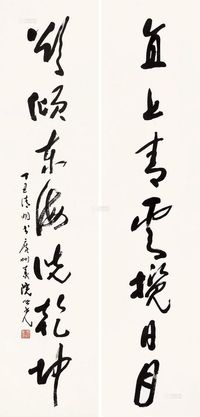 直上青云揽日月
欲倾东海洗乾坤
丁丑清明书广州美院